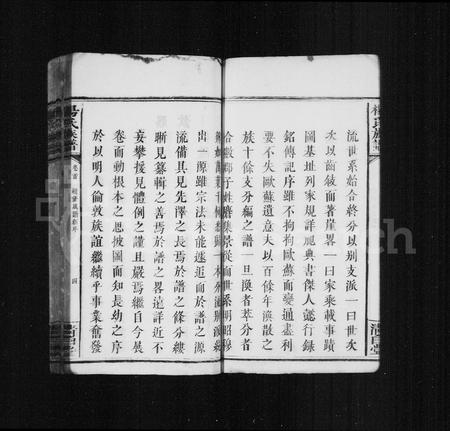 流世系始合終分以別支派一曰世次
次以齒敘而著崖畧一曰家乘載事蹟
圖基址列家規詳祀典書傑人懿行錄
銘傳記序雖不拘拘歐蘇而變通盡利
要不失歐蘇遺意夫以百餘年渙散之
族十餘支分編之譜一旦渙者萃分者
合數郡子姓
出一源雖宗法未能遽追而於譜之源
流備具見先澤之長焉於譜之條分縷
晰見纂輯之善焉於譜之畧遠詳近不
妄攀援見體例之謹且嚴焉繼自今展
卷而動根本之思披圖而知長幼之序
於以明人倫敦族誼繼續乎事業奮發
楊氏族譜
卷首
四
清白堂
楊氏族譜
清白堂